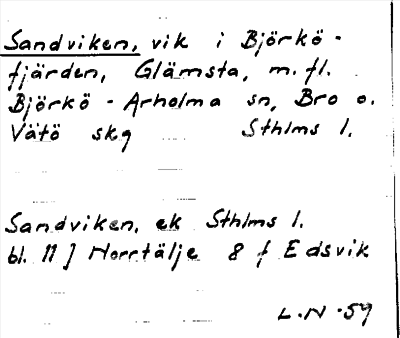 Sandviken, vik i Björkö -
fjärden, Glämsta, m. fl.
Björkö - Arholma sn, Bro o.
Vätö skg Sthlms l.
Sandviken, ek Sthlms l.
bl. 11 J Norrtälje 8 f Edsvik
L.N -59